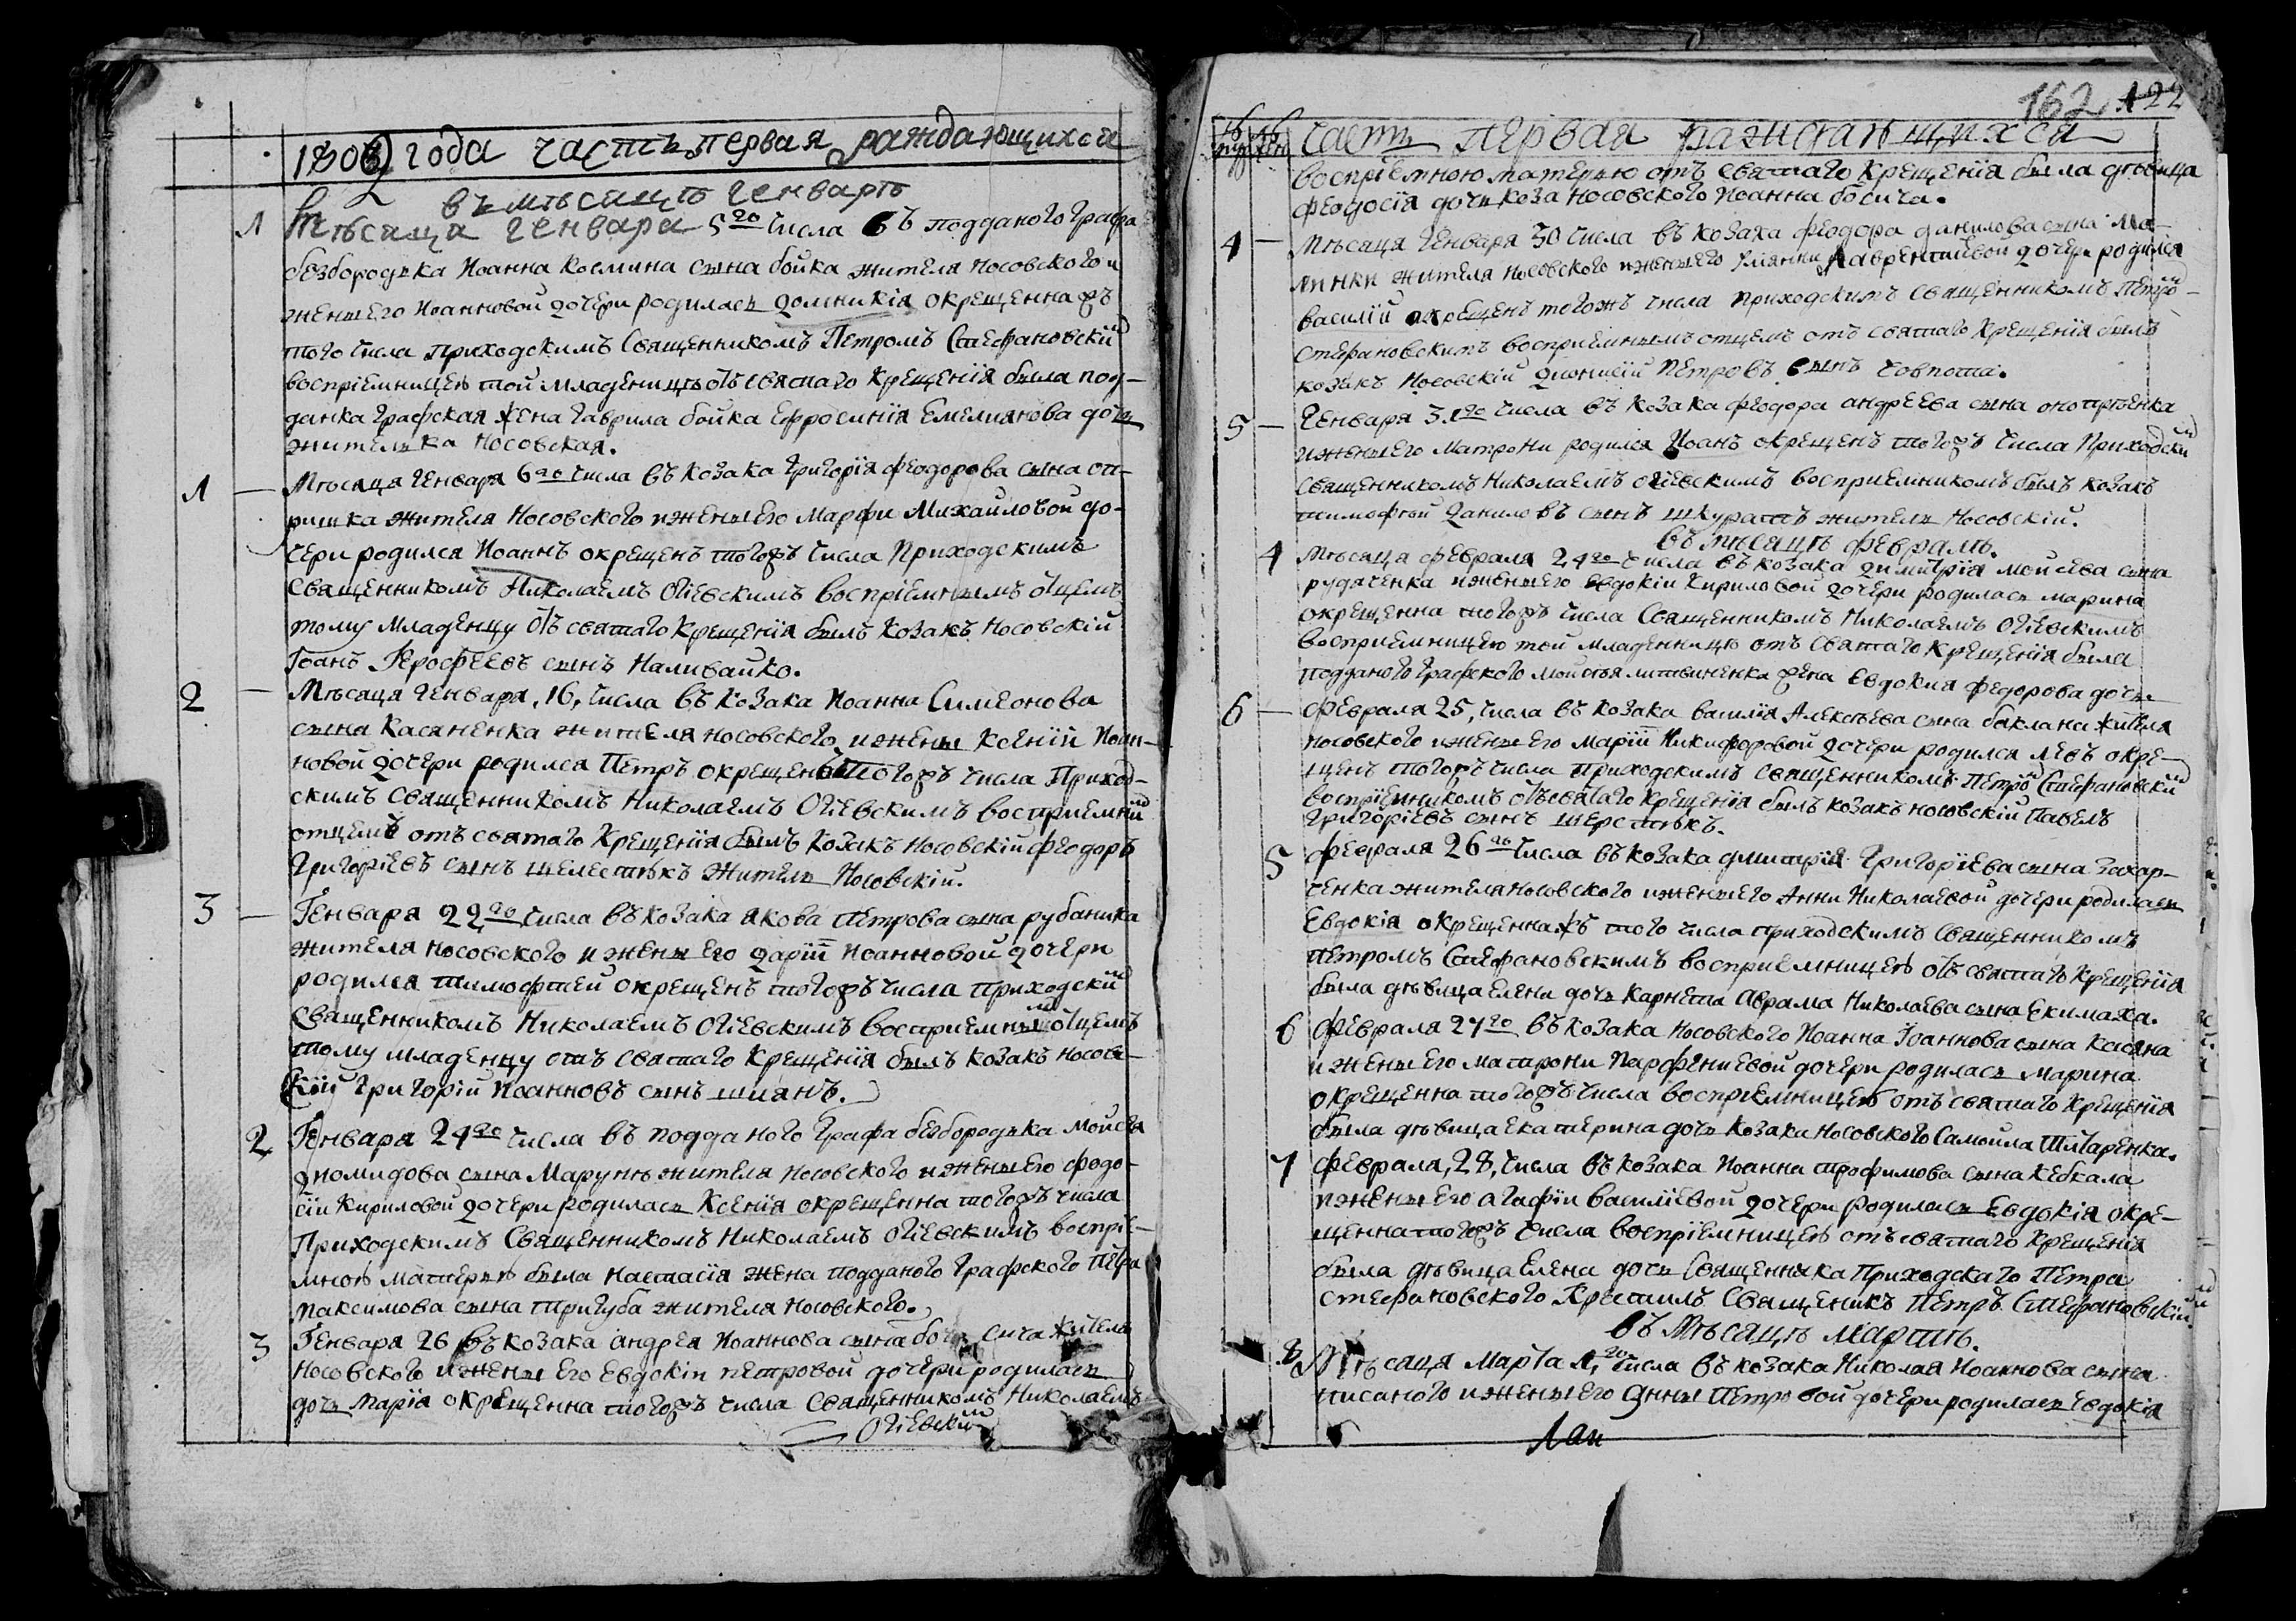 1802 года часть первая раждающихся
въ мѣсяцѣ генварѣ
1 Мѣсяца генваря 5го числа въ подданого графа
безбородька Иоанна Козмина сына бойка жителя носовского и
жены его Иоанновой дочери родилась домникія окрещенна жъ
того числа приходскимъ Священникомъ Петромъ Стефановским
воспріемницею той младеницѣ отъ святаго крещенія была под-
данка графская жена Гаврила бойка Ефросинія Емелиянова дочь
жителька Носовская.
1 — Мѣсяца генваря 6го числа въ козака григорія феодорова сына
ришка жителя Носовского и жены его Марфи Михайловой до-
чери родился Иоаннъ окрещенъ тогожъ числа Приходскимъ
Священникомъ Николаемъ Огіевскимъ воспріемнымъ отцемъ
тому младенцу отъ святаго крещенія былъ козакъ Носовскій
Іоанъ Ерофеевъ сынъ Наливайко.
2 — Мѣсяца генваря, 16, числа въ козака Иоанна Симеонова
сына Касяненка жителя носовского и жены Ксеніи Иоан-
новой дочери родился Петръ окрещенъ тогожъ числа Приход-
скимъ священникомъ Николаемъ Огіевскимъ восприемним
отцемъ отъ святаго крещенія былъ козакъ Носовскій феодоръ
григоріевъ сынъ шелестѣкъ житель Носовскій.
3 — Генваря 22го числа въ козака якова Петрова сына рубаника
жителя носовского и жены его даріи Иоанновой дочери
родился тимофтей окрещенъ тогожъ числа приходским
священникомъ Николаемъ Огіевскимъ восприемным отцемъ
тому младенцу отъ святаго крещенія былъ козакъ носов-
скій григорій Иоанновъ сынъ шиянъ.
2 Генваря 24го числа въ подданого графа безбородька Мойсея
диомидова сына Марунѣ жителя носовского и жены его феодо-
сіи Кириловой дочери родилась Ксенія окрещенна тогожъ числа
Приходскимъ Священникомъ Николаемъ Огіевскимъ воспріе-
мною матерью была настасія жена подданого графского Петра
максимова сына тригуба жителя носовского.
3 Генваря 26 въ козака андрея Иоаннова сына жителя
носовского и жены его Евдокіи петровой дочери родилась
дочь марія окрещенна тогожъ числа священникомъ Николаемъ
Огіевским
162 122
часть первая раждающихся
воспріемною матерью отъ святаго крещенія была дѣвица
феодосія дочь коза носовского Иоанна босича.
4 — Мѣсяца генваря 30 числа въ козака феодора данилова сына Ма-
линки жителя носовского и жены его Улянни Лаврентіевой дочери родился
василій окрещенъ тогожъ числа приходскимъ священникомъ Петро-
стефановскимъ восприемнымъ отцемъ отъ святаго крещенія былъ
козакъ Носовскій дионисій Петровъ сынъ човпота.
5 — Генваря 31го числа въ козака феодора андреева сына
и жены его матрони родился Иоанъ окрещенъ тогожъ числа Приходским
священникомъ Николаемъ Огіевскимъ восприемникомъ былъ козакъ
тимофтый даниловъ сынъ шкуратъ житель Носовскій.
въ мѣсяцѣ февралѣ.
4 Мѣсяца февраля 24го числа въ козака димитрія мойсева сына
рудаченка и жены его евдокіи Кириловой дочери родилась марина
окрещенна тогожъ числа Священникомъ Николаемъ Огіевскимъ
восприемницею той младенницѣ отъ святаго крещенія была
подданого графского мойсея литвиненка жена Евдокия федорова дочь
6 — февраля 25, числа въ козака василія Алексѣева сына баклана жителя
носовского и жены его маріи Никифоровой дочери родился левъ окре-
щенъ тогожъ числа приходскимъ священникомъ Петром Стефановским
воспріемникомъ отъ святаго крещенія былъ козакъ носовскій Павелъ
григоріевъ сынъ шерстюкъ.
5 февраля 26го числа въ козака дмитрія григоріева сына Захар-
ченка жителя носовского и жены его Анни Николаевой дочери родилась
Евдокія окрещенна жъ того числа приходскимъ священникомъ
петромъ Стефановскимъ восприемницею отъ святаго крещенія
была дѣвица елена дочь карнета Аврама Николаева сына екимаха.
6 февраля 27го въ козака носовского Иоанна Іоаннова сына касяна
и жены его матрони парфениевой дочери родилась марина
окрещенна тогожъ числа восприемницею отъ святаго крещенія
была дѣвица екатерина дочь козака носовского Самойла Титаренка.
7 февраля, 28, числа въ козака Иоанна трофимова сына кебкала
и жены его агафіи василіевой дочери родилась Евдокія окре-
щенна тогожъ числа воспріемницею отъ святаго крещенія
была дѣвица елена дочь священника приходскаго Петра
стефановского крестилъ священикъ петръ Стефановскій
въ мѣсяцѣ мартѣ.
8 Мѣсяца марта 1, го числа въ козака Николая Иоаннова сына
писаного и жены его Анны Петровой дочери родилась Евдокія